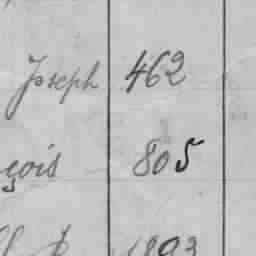 Joseph 462
çois 805
1893